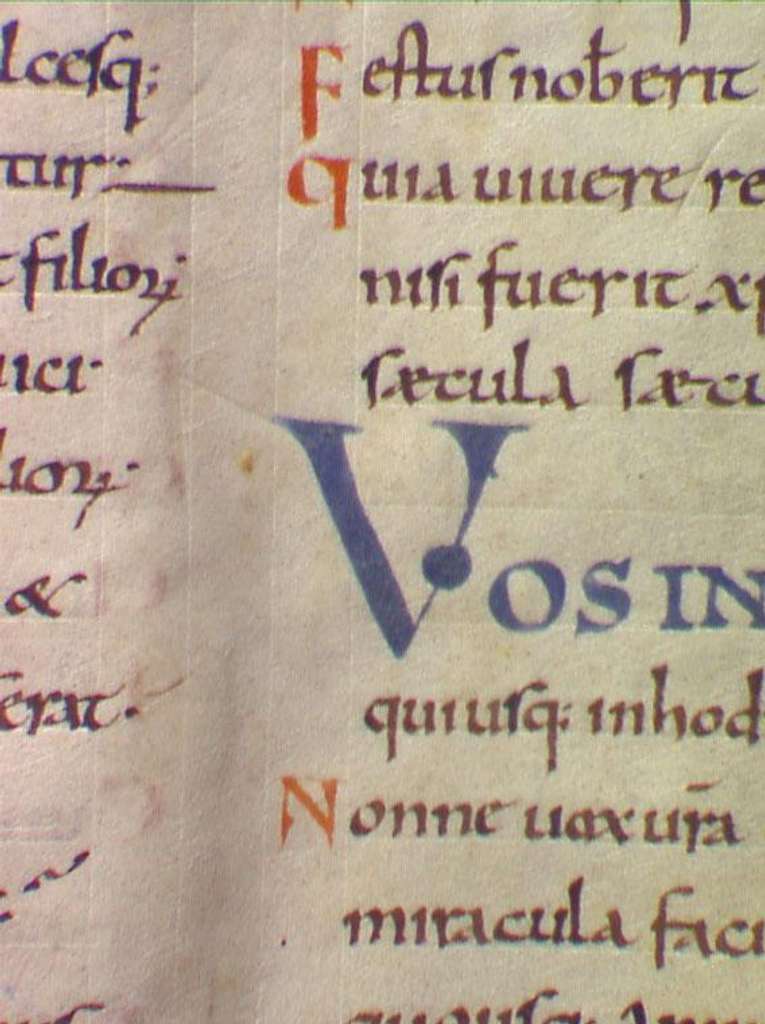 lcesq;
tur
filioꝝ
uici
lioꝝ
&
erat.
Festus nob erit
quia uiuere
nisi fuerit xp
sæcula sæcu
VOS IN
quiusq; inhod
Nonne uox ur̄a
miracula faci